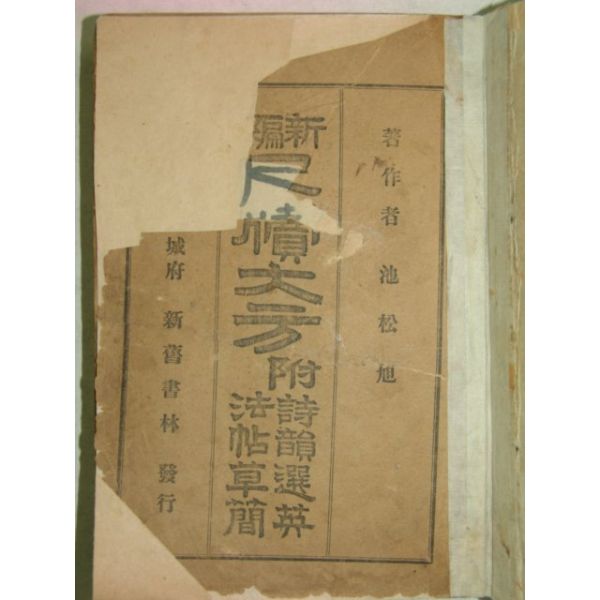 著作者 池松旭
新編
尺牘大方
附 詩韻選英
法帖草簡
城府 新舊書林 發行